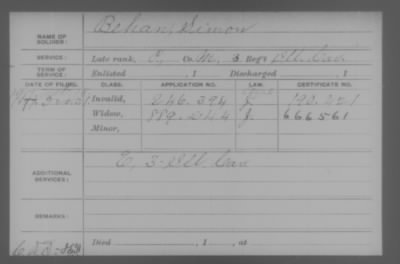 NAME OF SOLDIER: Behan, Simon
SERVICE: Late rank, Co. M, 3 Reg't Ill. Cav
TERM OF SERVICE: Enlisted , 1 Discharged , 1
DATE OF FILING. CLASS. APPLICATION NO. LAW. CERTIFICATE NO.
Invalid, 246.394
Widow, 889.244 J. 666561
Minor,
ADDITIONAL SERVICES: E, 3 Ill. Cav
REMARKS:
Died , 1 , at